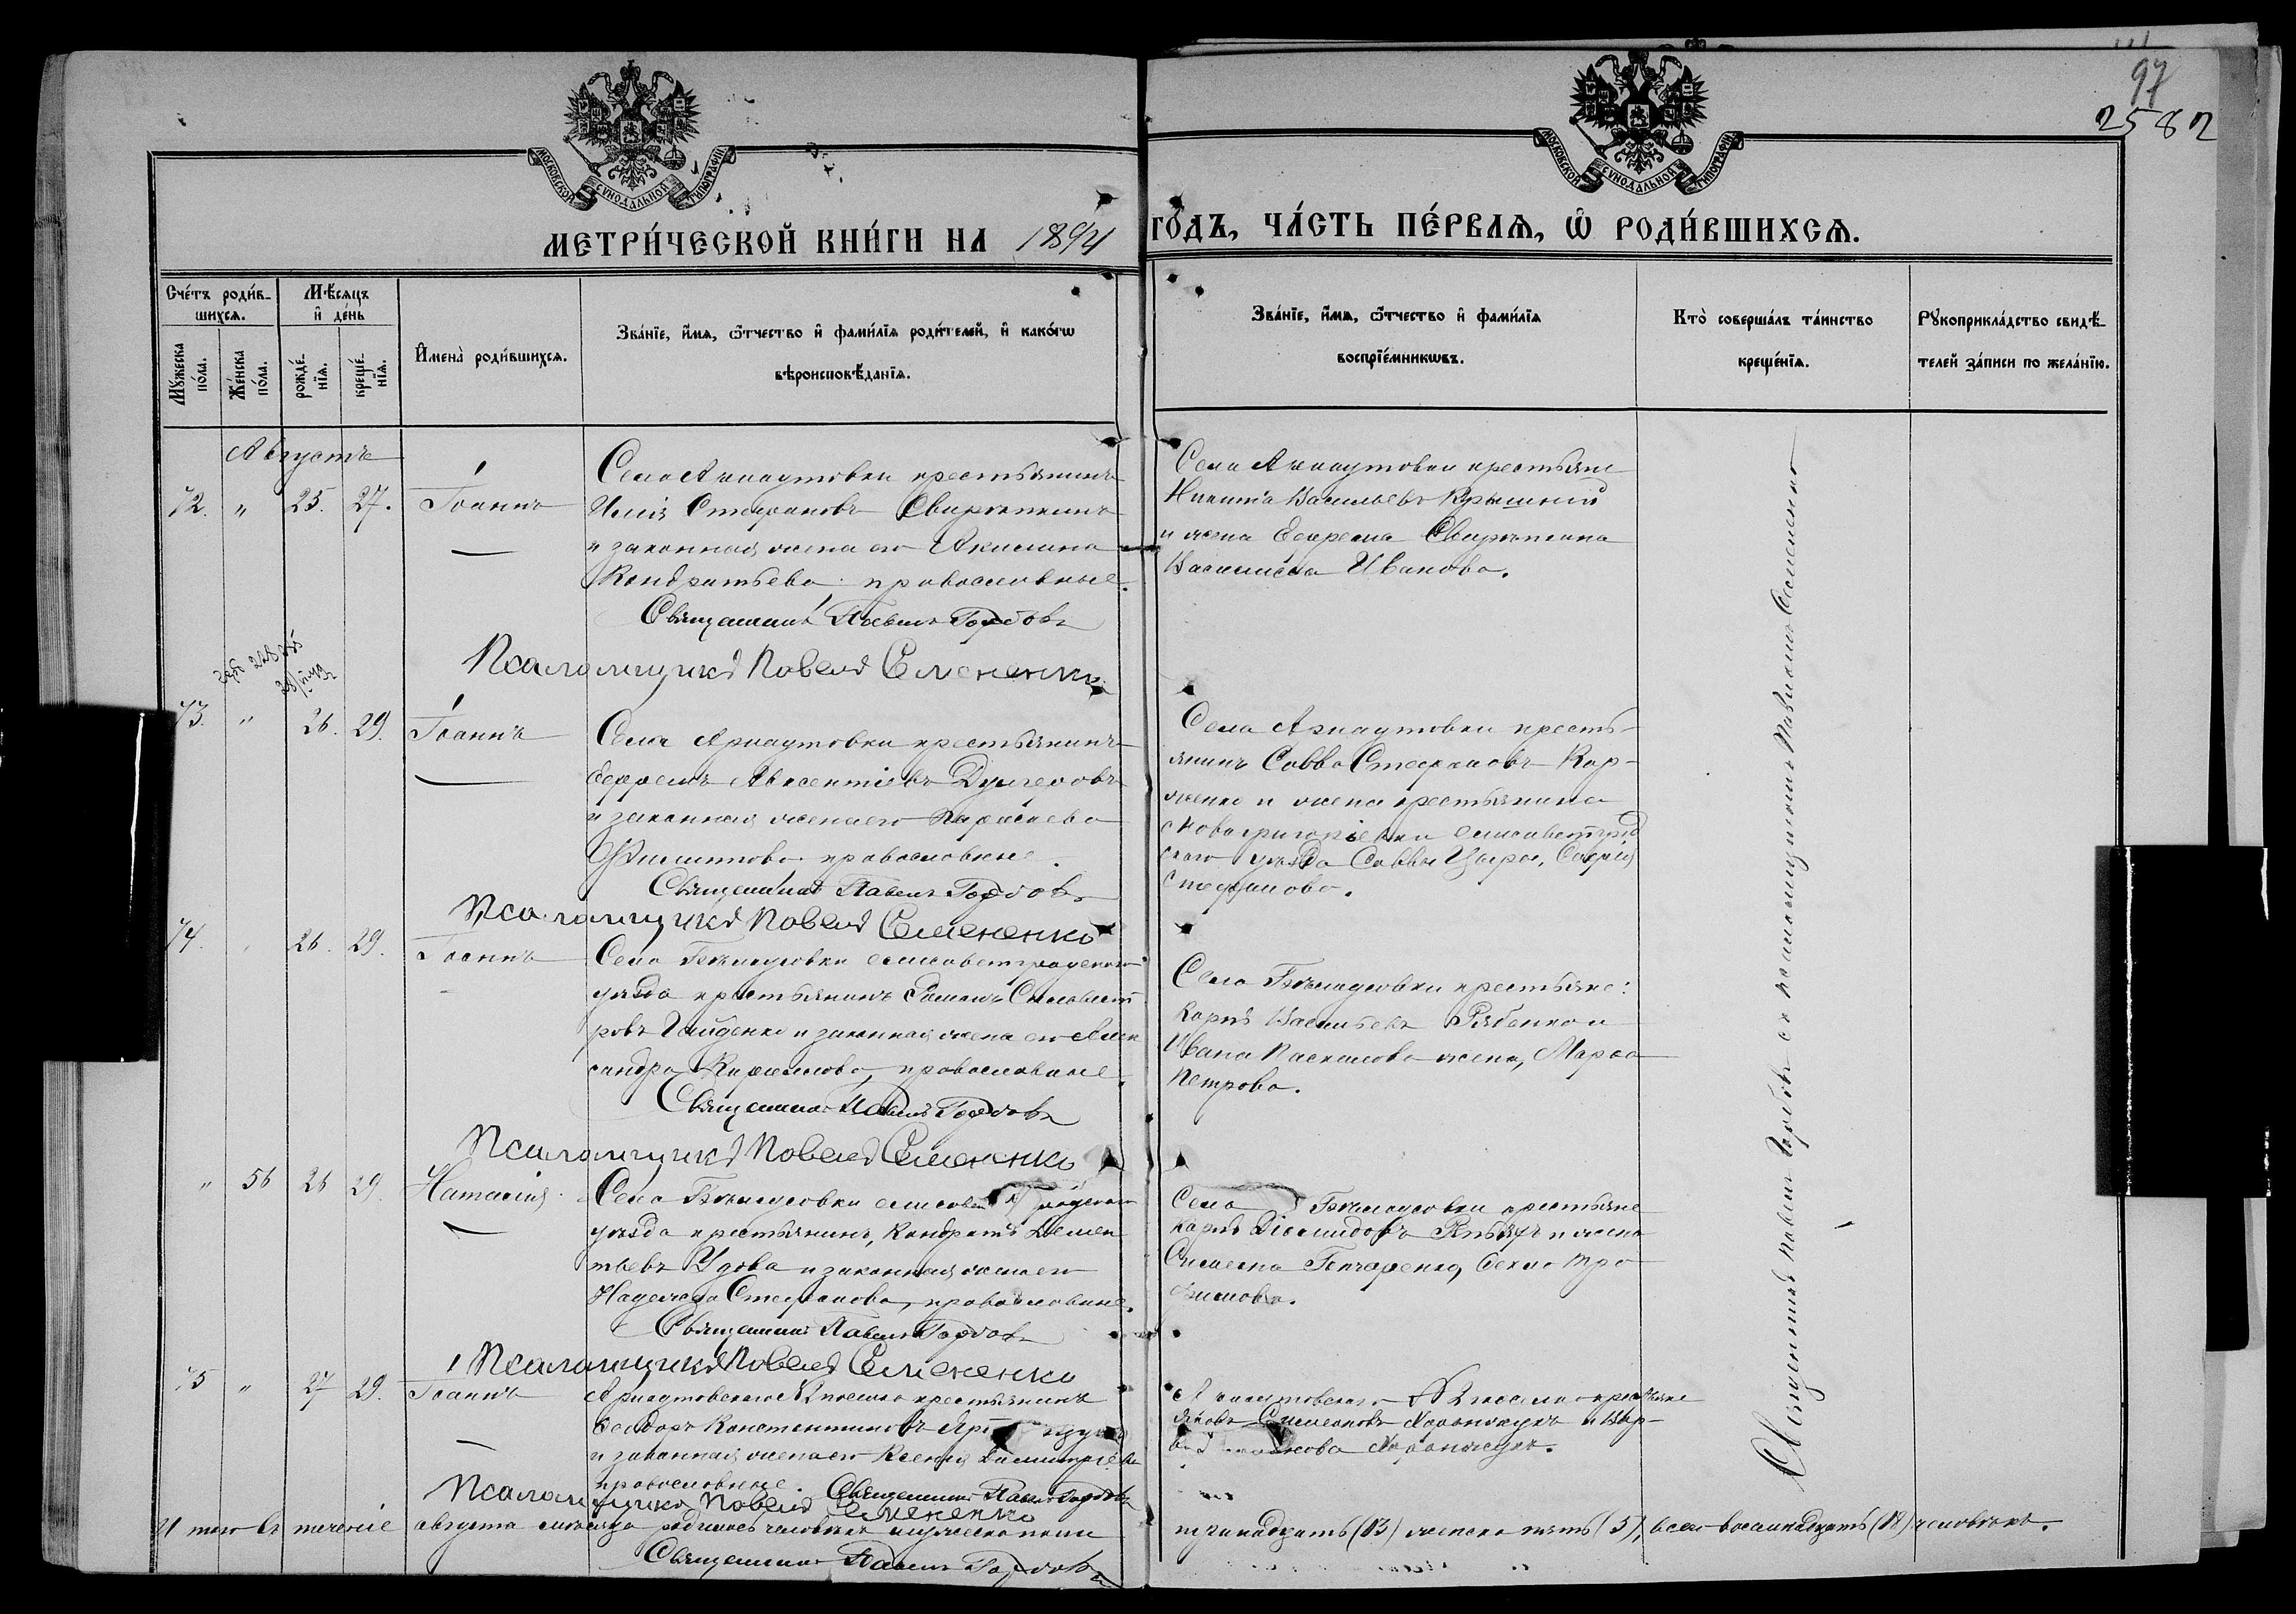 97
2582
МОСКОВСКОЙ СѴНОДАЛЬНОЙ ТИПОГРАФІИ
МОСКОВСКОЙ СѴНОДАЛЬНОЙ ТИПОГРАФІИ
МЕТРИ́ЧЕСКОЙ КНИ́ГИ НА 1894 ГО́ДЪ, ЧА́СТЬ ПЕ́РВАѦ, Ѽ РОДИ́ВШИХСѦ.
Сче́тъ роди́в-
шихсѧ.
Мꙋ́жеска по́ла.
Же́нска по́ла.
Мѣ́сѧцъ
и҆ де́нь
рожде́-
нїѧ.
креще́-
нїѧ.
И҆мена̀ роди́вшихсѧ.
Зва́нїе, и҆́мѧ, ѻ҆́тчество и҆ фами́лїѧ роди́телей, и҆ како́гѡ
вѣроисповѣ́данїѧ.
Зва́нїе, и҆́мѧ, ѻ҆́тчество и҆ фами́лїѧ
воспрїе́мникѡвъ.
Кто̀ соверша́лъ та́инство
креще́нїѧ.
Рꙋкоприкла́дство свидѣ́-
телей за́писи по жела́нїю.
Августъ
72. " 25. 27. Іоаннъ
Села Арнаутовки крестьянинъ
Илія Стефановъ
и законная жена его Акилина
Кондратьева православные.
Священникъ Павелъ Горбовъ
Псаломщикъ Павелъ Семененко
Села Арнаутовки крестьяне
Никита Васильевъ
и жена Ефрема
Василиса Иванова.
73. " 26. 29. Іоаннъ
Села Арнаутовки крестьянинъ
Ефремъ Авксентіевъ
и законная жена его Параскева
Филиппова православные.
Священникъ Павелъ Горбовъ
Псаломщикъ Павелъ Семененко
Села Арнаутовки кресть-
янинъ Савва Стефановъ Кор-
женко и жена крестьянина
Новогригоріевки елисаветград
скаго уѣзда Саввы Софія
Стефанова.
74. " 26. 29. Іоаннъ
Села елисаветградскаго
уѣзда крестьянинъ Романъ Силвест
ровъ Гайденко и законная жена его Алек
сандра Кириллова, православные.
Священникъ Павелъ Горбовъ
Псаломщикъ Павелъ Семененко
Села крестьяне:
Карпъ Васильевъ Рябенко и
Ивана жена, Марѳа
Петрова.
" 56 26 29. Наталія
Села елисаветградскаго
уѣзда крестьянинъ, Кондратъ Демен
тьевъ Удова и законная жена его
Надежда Стефанова, православные.
Священникъ Павелъ Горбовъ
Псаломщикъ Павелъ Семененко
Села крестьяне
Карпъ Діомидовъ и жена
Симеона Гончаренко, Ѳекла Тро
фимова.
75 " 27 29. Іоаннъ
Арнаутовскаго поселка крестьянинъ
Ѳеодоръ Константиновъ
и законная жена его Ксенія Димитріева
православные. Священникъ Павелъ Горбовъ
Псаломщикъ Павелъ Семененко
Арнаутовскаго поселка крестьяне
Яковъ Симеоновъ и Вар-
Священникъ Павелъ Горбовъ съ псаломщикомъ Павломъ Семененко
Итого въ теченіе августа мѣсяца родилось человѣкъ мужеска пола тринадцать (13) женска пять (5), всего восемнадцать (18) человѣкъ.
Священникъ Павелъ Горбовъ